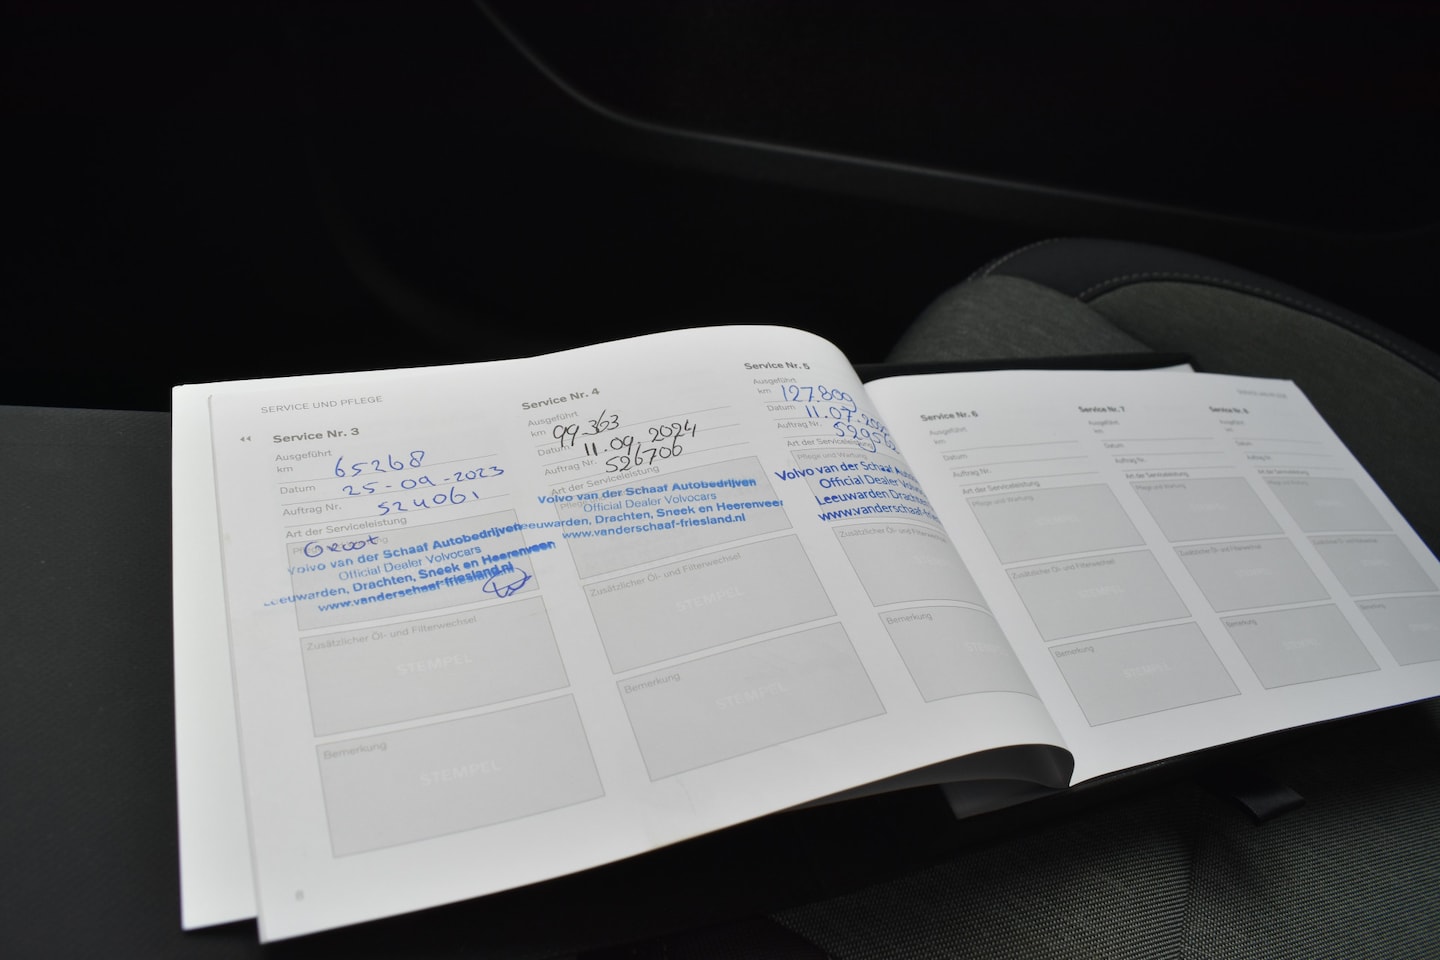 SERVICE UND PFLEGE
Service Nr. 3
Ausgeführt
km 65268
Datum 25-09-2023
Auftrag Nr. 524061
Art der Serviceleistung
Groot
Volvo van der Schaaf Autobedrijven
Official Dealer Volvocars
Leeuwarden, Drachten, Sneek en Heerenveen
www.vanderschaaf-friesland.nl
Zusätzlicher Öl- und Filterwechsel
STEMPEL
Bemerkung
STEMPEL
8
Service Nr. 4
Ausgeführt
km 99.363
Datum 11.09.2024
Auftrag Nr. 526706
Art der Serviceleistung
Volvo van der Schaaf Autobedrijven
Official Dealer Volvocars
Leeuwarden, Drachten, Sneek en Heerenveen
www.vanderschaaf-friesland.nl
Zusätzlicher Öl- und Filterwechsel
STEMPEL
Bemerkung
STEMPEL
Service Nr. 5
Ausgeführt
km 127.800
Datum 11.07.
Auftrag Nr.
Art der Serviceleistung
Pflege und Wartung
Volvo van der Schaaf
Official Dealer Volvocars
Leeuwarden Drachten
www.vanderschaaf-friesl
Zusätzlicher Öl- und
Bemerkung
Service Nr. 6
Ausgeführt
km
Datum
Auftrag Nr.
Art der Serviceleistung
Pflege und Wartung
Zusätzlicher Öl- und Filterwechsel
STEMPEL
Bemerkung
STEMPEL
Service Nr. 7
Ausgeführt
km
Datum
Auftrag Nr.
Art der Serviceleistung
Pflege und Wartung
Zusätzlicher Öl- und Filterwechsel
Bemerkung
STEMPEL
Service Nr. 8
Ausgeführt
km
Datum
Auftrag Nr.
Art der Serviceleistung
Pflege und Wartung
Zusätzlicher Öl- und Filterwechsel
Bemerkung